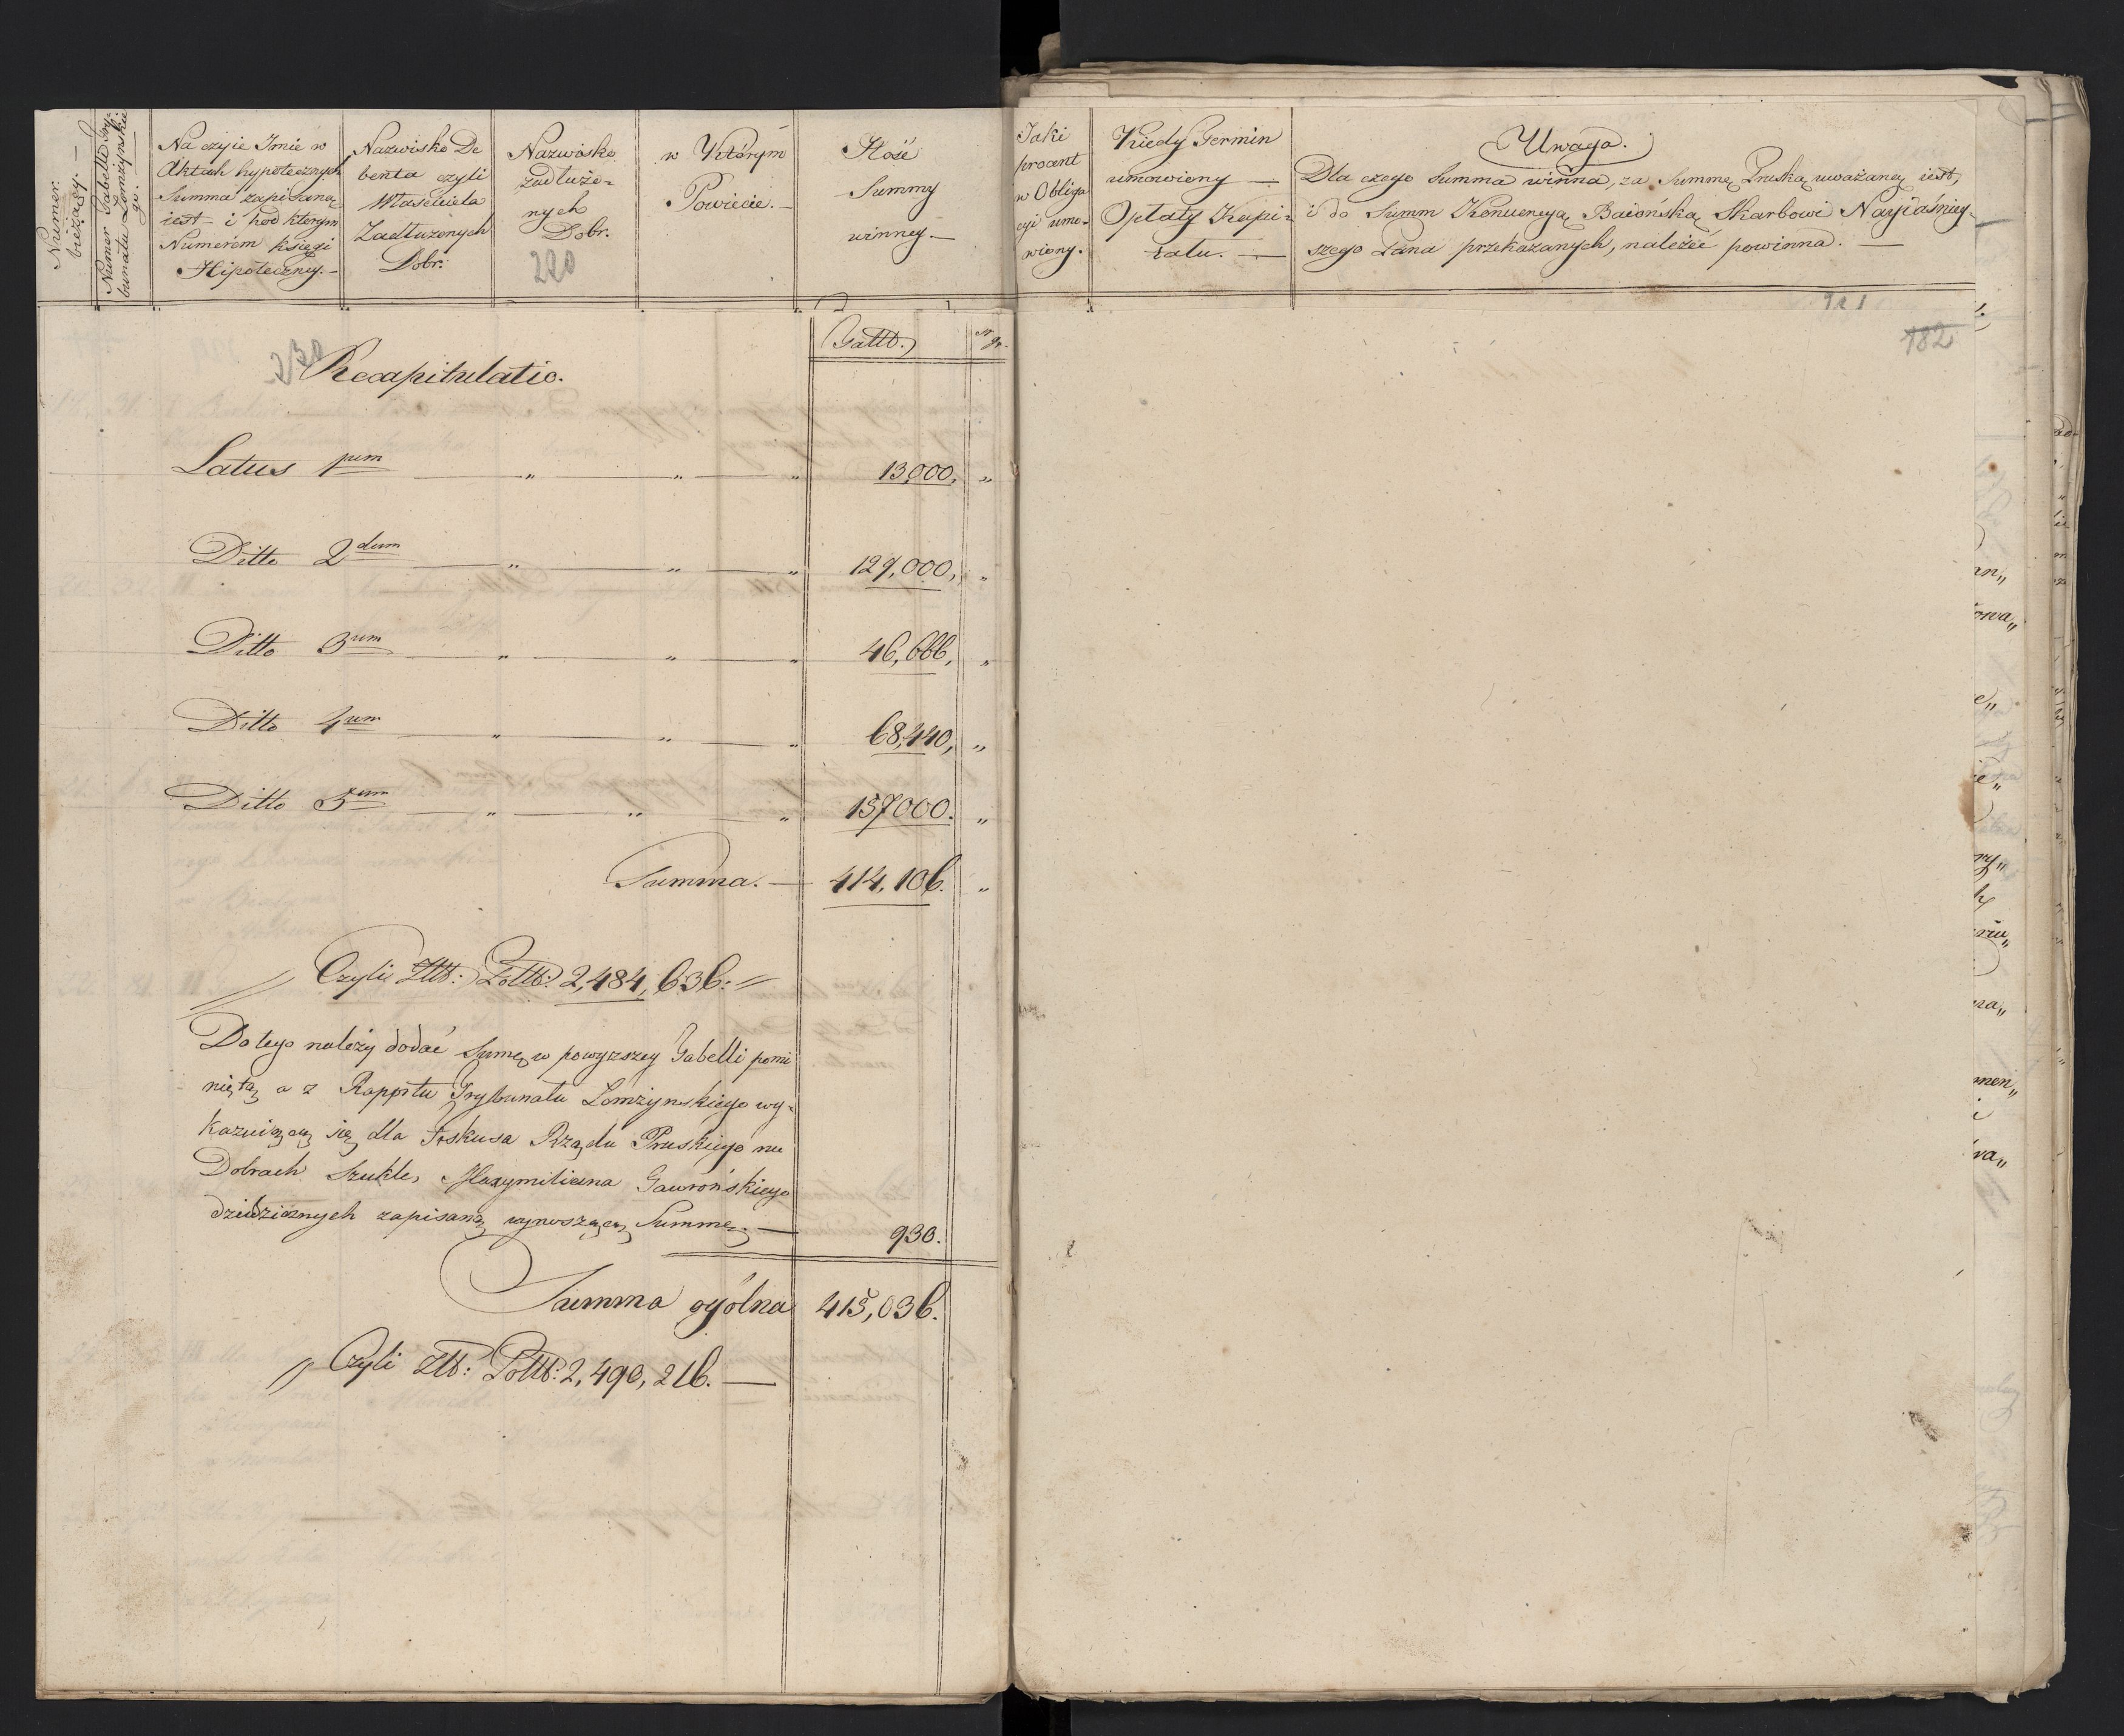 Numer bieżący. —
Numer Tabelli Try-
bunału Łomżyńskie
go. —
Na czyie Imie w
Aktach hypotecznych
Summa zapisana
iest i pod którym
Numerem księgi
Hipoteczney. —
Nazwisko De
benta czyli
Właściciela
Zadłużonych
Dobr.
Nazwisko
zadłużo=
nych
Dobr.
220
w Którym
Powiecie. —
Ilość
Summy
winney —
Jaki
procent
w Obliga
cyi umo-
wiony.
Kiedy Termin
umowiony —
Opłaty Kapi=
tału. —
Uwaga.
Dla czego Summa winna, za Summę Pruską uważaną iest,
i do Summ Konwencyą Baiońską Skarbowi Nayiaśniey-
szego Pana przekazanych, należéć powinna. —
182
230
Recapitulatio.
Latus 1mum — „ — „ — „ 13,000, „
Ditto 2dum — „ — „ — „ 129,000, „
Ditto 3um — „ — „ — „ 46,666, „
Ditto 4um — „ — „ — „ 68,440, „
Ditto 5um — „ — „ — „ 157000. „
Summa. — 414,106. „
Czyli Złł: Poll: 2,484,636:
Do tego należy dodać Sumę w powyzszey Tabelli pomi
niętą a z Rapportu Trybunału Łomżynskiego wy=
kazuiącą się dla Fiskusa Rządu Pruskiego na
Dobrach Szukle, Maxymiliana Gawrońskiego
dziedzicznych zapisaną wynoszącą Summę. — 930.
Summa ogólna 415,036.
Czyli Złł: Poll: 2,490,216. —